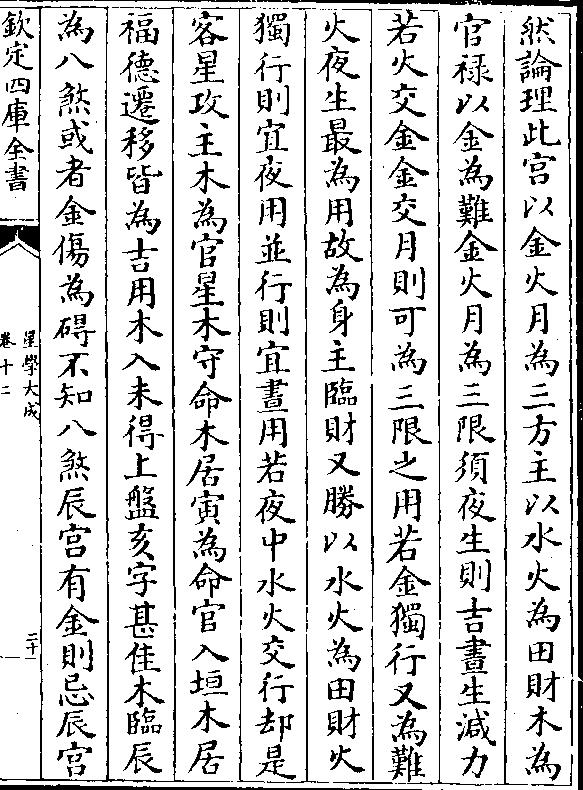 然論理此宫以金火月為三方主以水火為田財木為
官禄以金為難金火月為三限須夜生則吉晝生減力
若火交金金交月則可為三限之用若金獨行又為難
火夜生最為用故為身主臨財又勝以水火為田財火
獨行則宜夜用並行則宜晝用若夜中水火交行却是
客星攻主木為官星木守命木居寅為命官入垣木居
福德遷移皆為吉用木入未得上盤亥字甚佳木臨辰
為八煞或者金傷為碍不知八煞辰宫有金則忌辰宫
欽定四庫全書
星學大成
卷十二
二十一